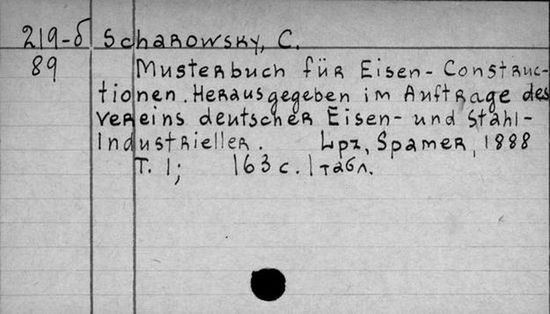 219-б Scharowsky, C.
89 Musterbuch für Eisen-Construc-
tionen. Herausgegeben im Auftrage des
Vereins deutscher Eisen- und Stahl-
Industrieller. Lpz, Spamer, 1888
T. 1; 163 с. 1 табл.